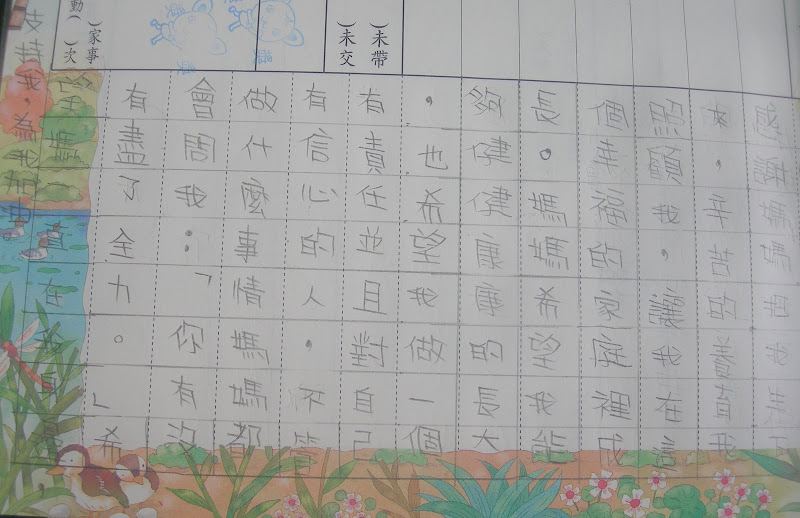 ）未帶
）未交
）家事
勤（ ）次
感謝媽媽把我生下
來，辛苦的養育我
照顧我，讓我在這
個幸福的家庭裡成
長。媽媽希望我能
夠健健康康的長大
，也希望我做一個
有責任並且對自己
有信心的人，不管
做什麼事情媽媽都
會問我：「你有沒
有盡了全力。」希
望媽直在身邊
支持我，為我加油